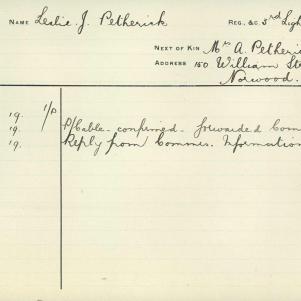 NAME Leslie. J. Petherick REG. &C. 3rd Ligh
NEXT OF KIN Mrs A. Petheric
ADDRESS 150 William Ste
Norwood.
19. 1/P P/Cable - confirmed - forwarded Com
19. Reply from Commis. Information
19.